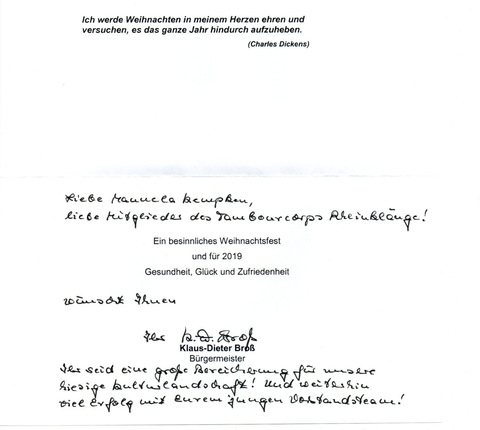 Ich werde Weihnachten in meinem Herzen ehren und
versuchen, es das ganze Jahr hindurch aufzuheben.
(Charles Dickens)
Liebe Manuela Kempken,
liebe Mitglieder des Tambourcorps Rheinklänge!
Ein besinnliches Weihnachtsfest
und für 2019
Gesundheit, Glück und Zufriedenheit
wünscht Ihnen
Ihr K.D. Broß
Klaus-Dieter Broß
Bürgermeister
Ihr seid eine große Bereicherung für unsere
hiesige Kulturlandschaft! Und weiterhin
viel Erfolg mit eurem jungen Vorstandsteam!